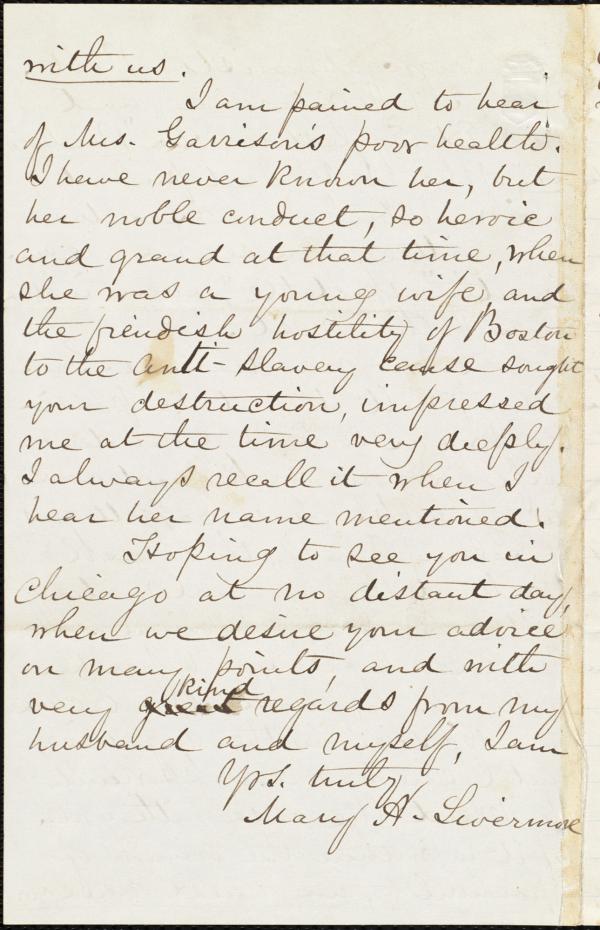 with us.
I am pained to hear
of Mrs. Garrison's poor health.
I have never known her, but
her noble conduct, so heroic
and grand at that time, when
she was a young wife, and
the fiendish hostility of Boston
to the anti-slavery cause sought
your destruction, impressed
me at the time very deeply.
I always recall it when I
hear her name mentioned.
Hoping to see you in
Chicago at no distant day,
when we desire your advice
on many points, and with
very great kind regards from my
husband and myself, I am
Yrs. truly,
Mary A. Livermore